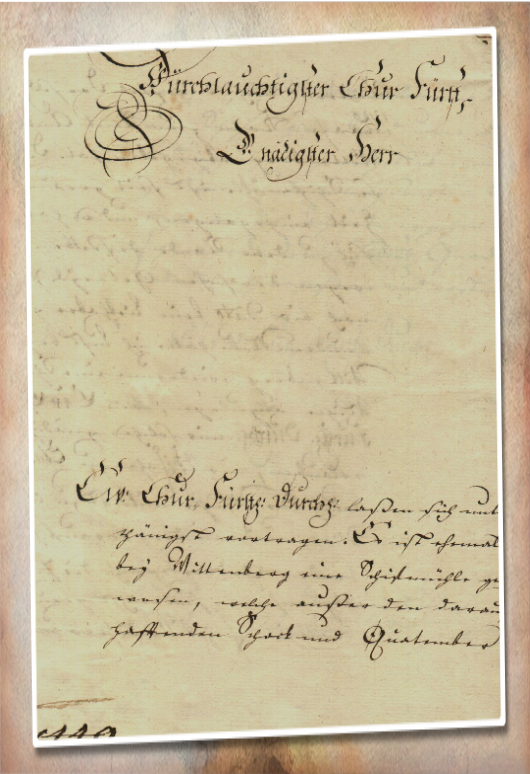 Dürchlauchtigster Chur Fürst,
Gnädigster Herr
Ew. Chur Fürstl: Durchl: laßen sich unt
thänigst vortragen. Es ist ehemal
bey Wittenberg eine Schifmühle ge-
wesen, welche außer den darau
hafftenden Schock und Quatember